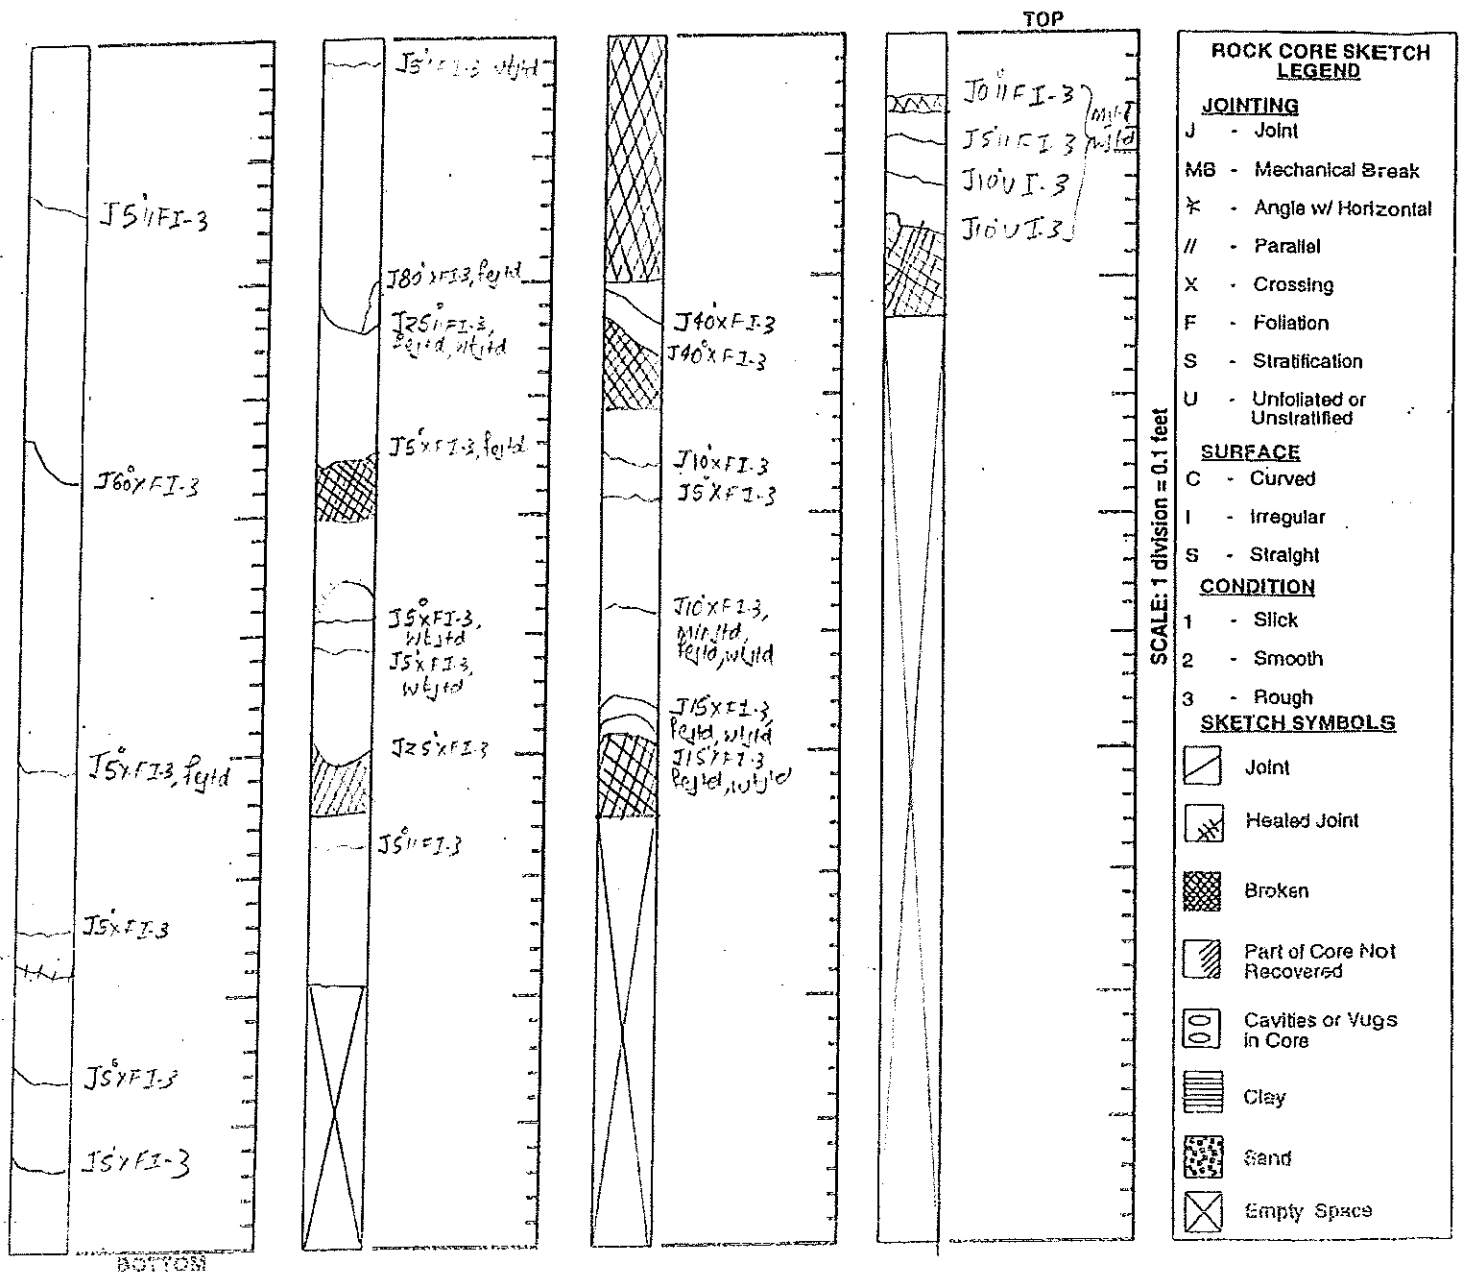 TOP
J5°//FI-3
J60°XFI-3
J5°XFI-3, fejtd
J5°XFI-3
J5°XFI-3
J5°XFI-3
BOTTOM
J5°//FI-3 wtjtd
J80°XFI-3, fejtd
J25°//FI-3,
fejtd, wtjtd
J5°XFI-3, fejtd
J5°XFI-3,
wtjtd
J5°XFI-3,
wtjtd
J25°XFI-3
J5°//FI-3
J40°XFI-3
J40°XFI-3
J10°XFI-3
J5°XFI-3
J10°XFI-3,
fejtd, wtjtd
J15°XFI-3,
fejtd, wtjtd
J15°XFI-3
fejtd, wtjtd
J0°//FI-3
J5°//FI-3
J10°UI-3
J10°UI-3
SCALE: 1 division = 0.1 feet
ROCK CORE SKETCH
LEGEND
JOINTING
J - Joint
MB - Mechanical Break
- Angle w/ Horizontal
// - Parallel
X - Crossing
F - Foliation
S - Stratification
U - Unfoliated or
Unstratified
SURFACE
C - Curved
I - Irregular
S - Straight
CONDITION
1 - Slick
2 - Smooth
3 - Rough
SKETCH SYMBOLS
Joint
Healed Joint
Broken
Part of Core Not
Recovered
Cavities or Vugs
in Core
Clay
Sand
Empty Space